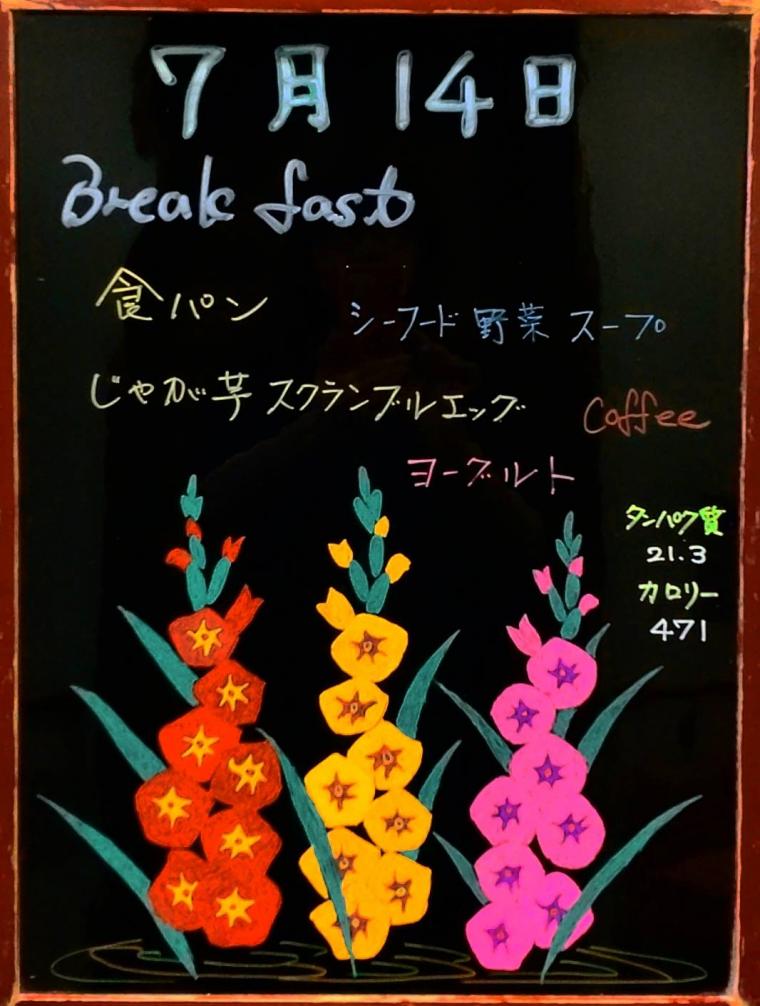 7月14日
Break fast
食パン
シーフード野菜スープ
じゃが芋スクランブルエッグ
Coffee
ヨーグルト
タンパク質
21.3
カロリー
471